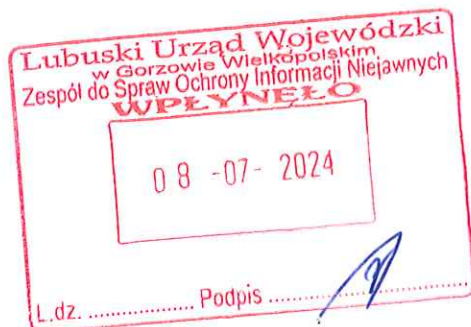 Lubuski Urząd Wojewódzki
w Gorzowie Wielkopolskim
Zespół do Spraw Ochrony Informacji Niejawnych
WPŁYNĘŁO
08 -07- 2024
L.dz. .................. Podpis ..................